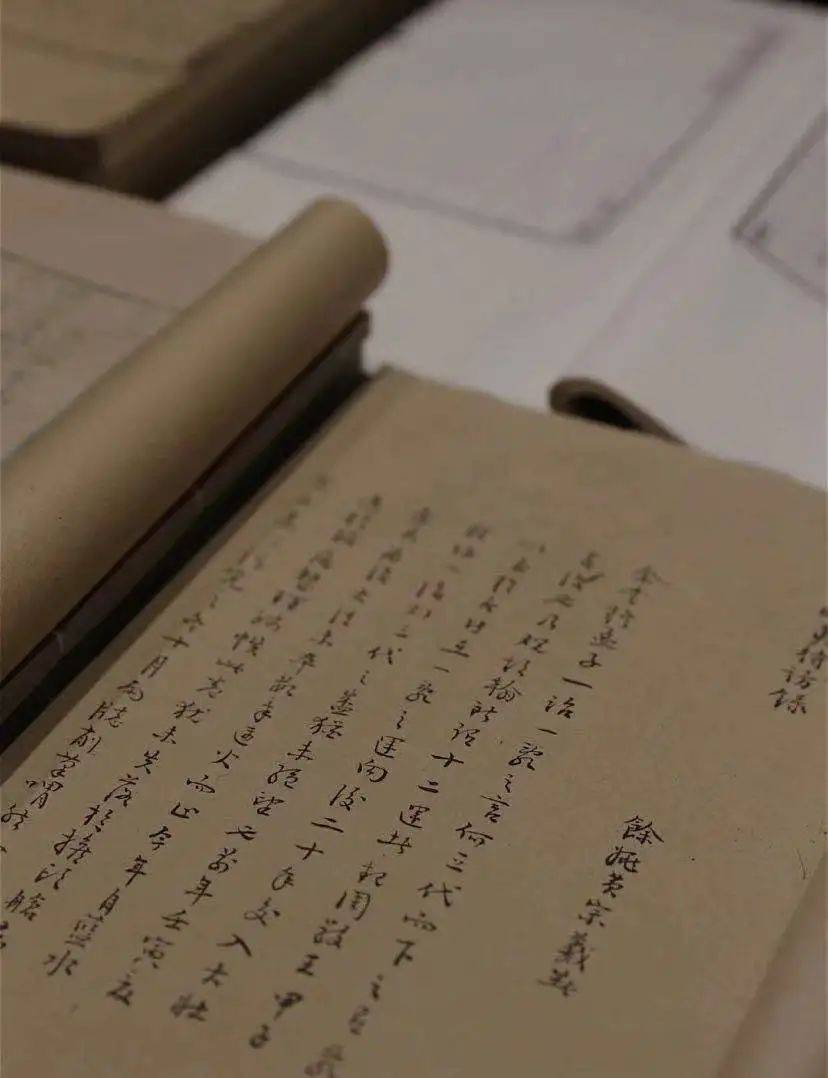 夷待訪錄
餘姚黃宗羲著
余嘗疑孟子一治一亂之言何三代而下之有亂
無治也乃觀胡翰所謂十二運者起周敬王甲子
以至於今皆在一亂之運向後二十年交入大壯
始得一治則三代之盛猶未絕望也前年壬寅夏
條具為治大法未卒數章遇火而止今年自藍水
返於故居整理殘帙此卷猶未失落於擔頭艙底
請完之冬十月雨牕削筆喟然